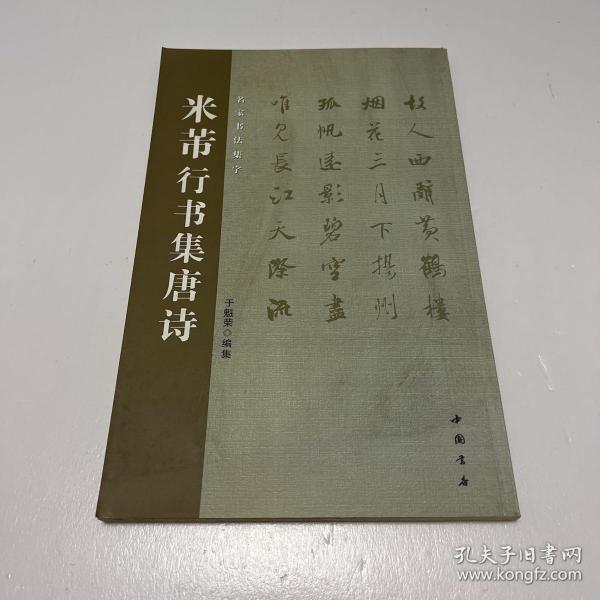 米芾行书集唐诗
名家书法集字
故人西辭黄鶴樓
烟花三月下揚州
孤帆遠影碧空盡
唯見長江天際流
于魁荣◎编集
中国书店
孔夫子旧书网
www.kongfz.com